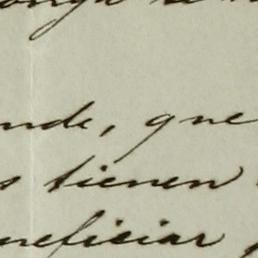 nde, que
s tienen
neficiar